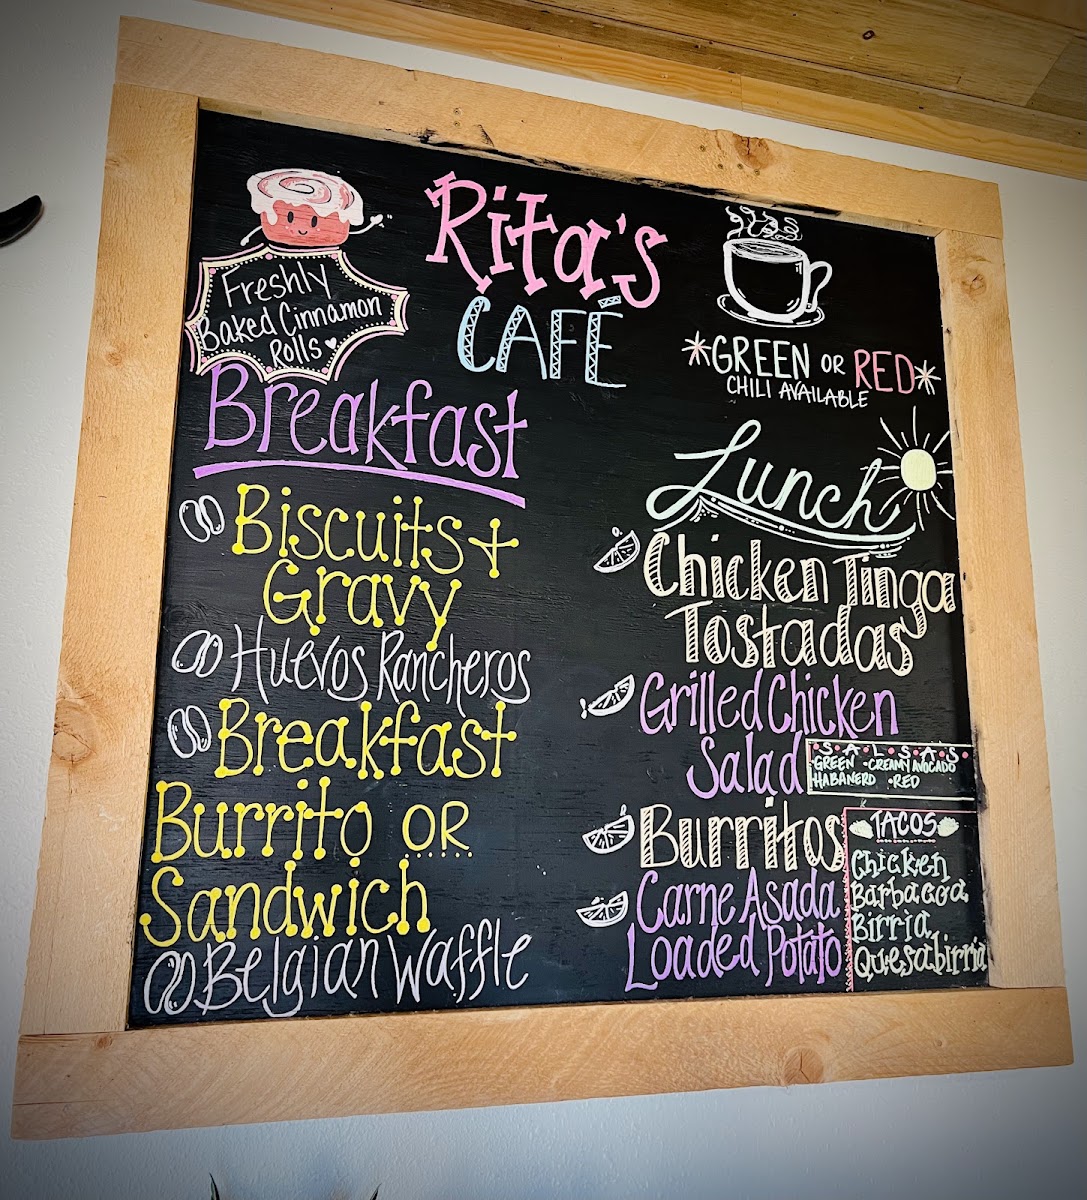 Rita's
CAFÉ
Freshly
Baked Cinnamon
Rolls
*GREEN OR RED*
CHILI AVAILABLE
Breakfast
Biscuits +
Gravy
Huevos Rancheros
Breakfast
Burrito OR
Sandwich
Belgian Waffle
Lunch
Chicken Tinga
Tostadas
Grilled Chicken
Salad
Burritos
Carne Asada
Loaded Potato
•S•A•L•S•A•S•
•GREEN •CREAMY AVOCADO
HABANERO •RED
TACOS
Chicken
Barbacoa
Birria
Quesabirria